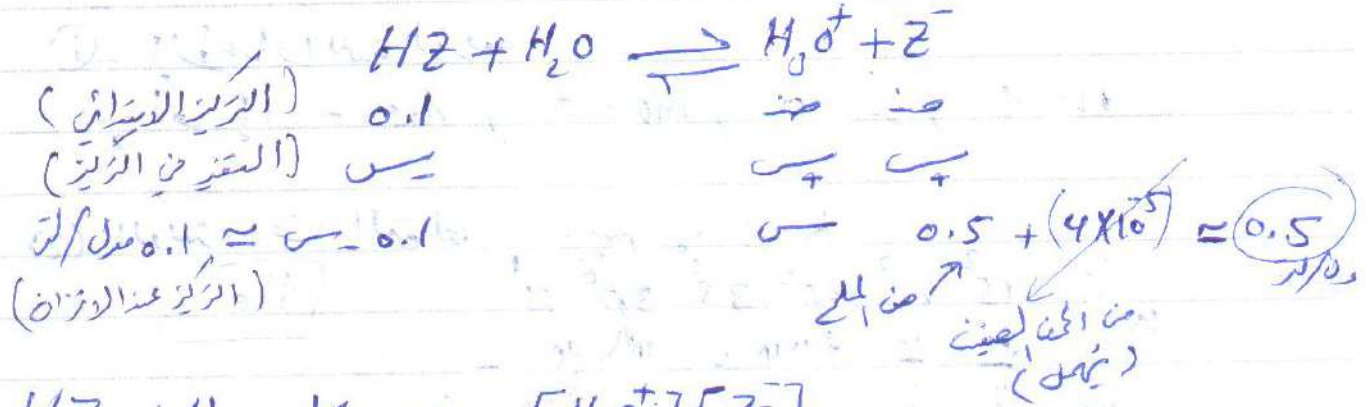 HZ + H₂O ⇌ H₃O⁺ + Z⁻
(التركيز الابتدائي) 0.1 صفر صفر
(التغير في التركيز) -س +س +س
0.1 - س ≈ 0.1 مول/لتر س 0.5 + (4×10⁻⁵) ≈ 0.5 مول/لتر
(التركيز عند الاتزان) من الملح من الحمض الضعيف
(يهمل)
HZ [H₃O⁺][Z⁻]